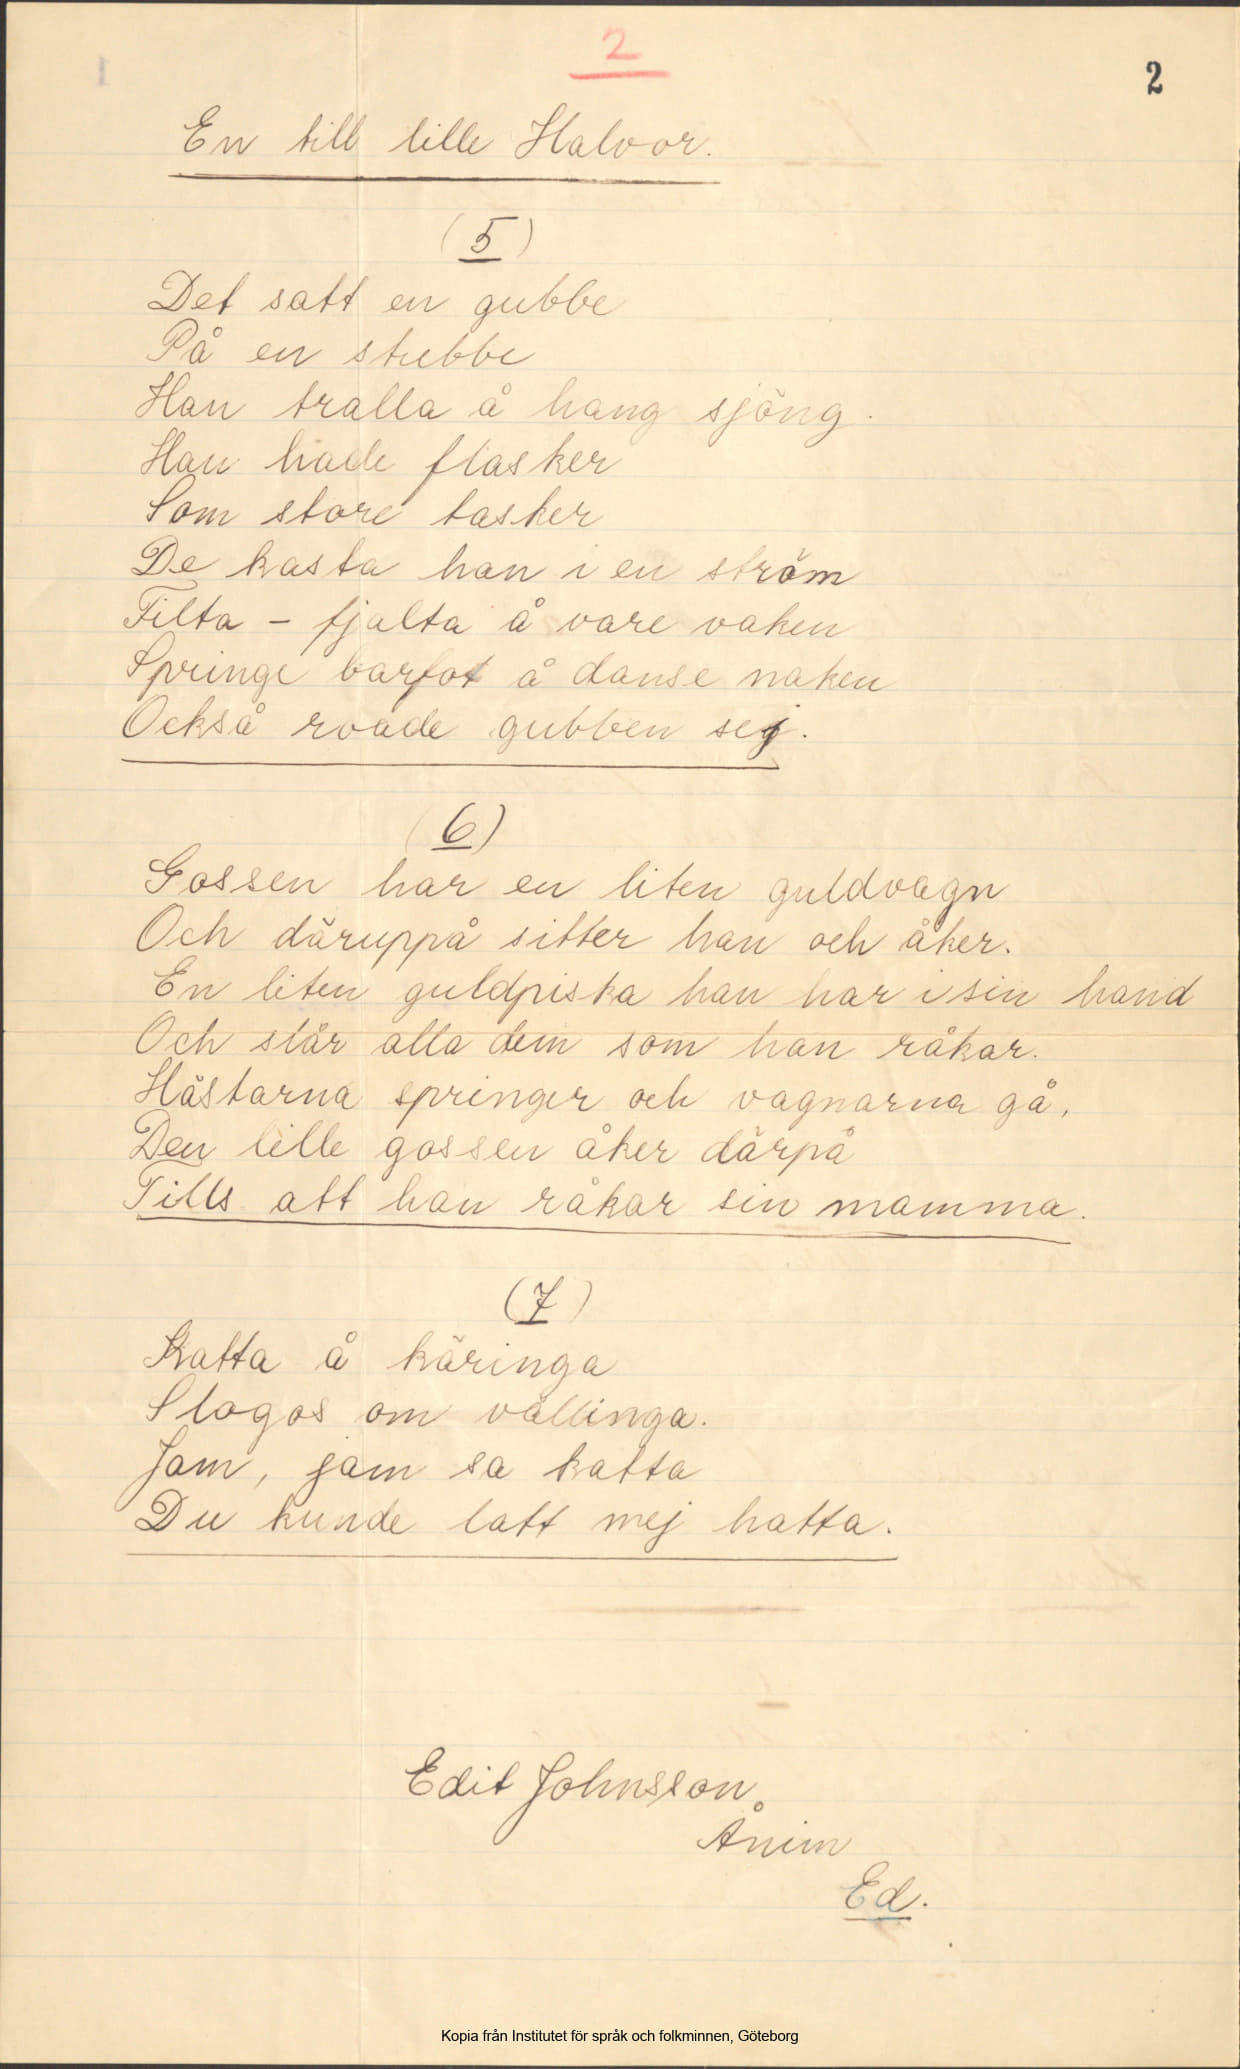 2
2
En till lille Halvor.
(5)
Det satt en gubbe
På en stubbe
Han tralla å hang sjöng.
Han hade flasker
Som store tasker
De kasta han i en ström
Filta - fjalta å vare vaken
Springe barfot å danse naken
Också roade gubben sej.
(6)
Gossen har en liten guldvagn
Och däruppå sitter han och åker.
En liten guldpiska han har i sin hand
Och slår alla dem som han råkar.
Hästarna springer och vagnarna gå,
Den lille gossen åker därpå
Tills att han råkar sin mamma.
(7)
Katta å käringa
Slogos om vällinga.
Jam, jam sa katta
Du kunde latt mej hatta.
Edit Johnsson.
Ånim
Ed.
Kopia från Institutet för språk och folkminnen, Göteborg